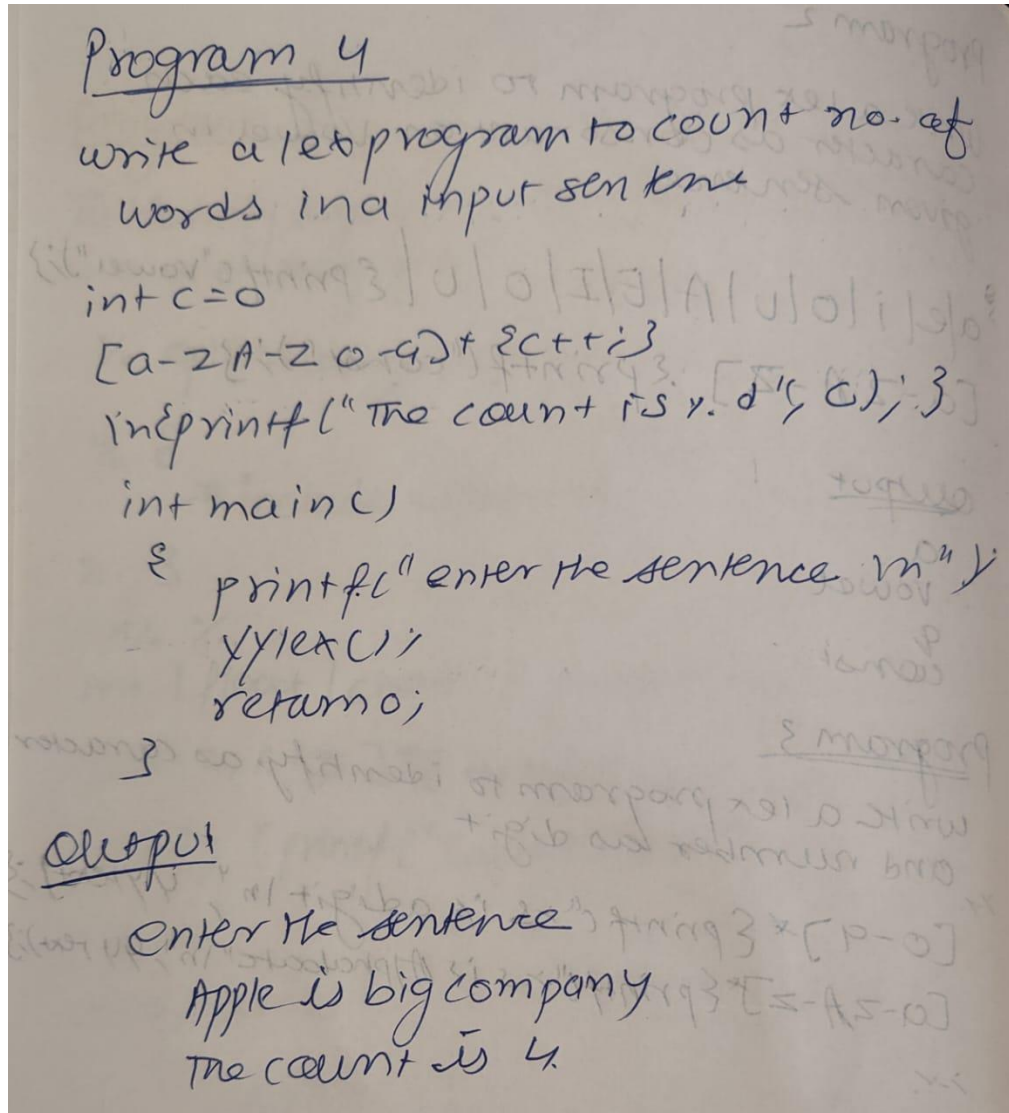 Program 4
write a lex program to count no. of
words in a input sentence
int c=0
[a-zA-Z0-9]+ {c++;}
\n{printf("The count is %d", c);}
int main()
{
printf("enter the sentence \n");
yylex();
return 0;
}
Output
enter the sentence
Apple is big company
The count is 4.